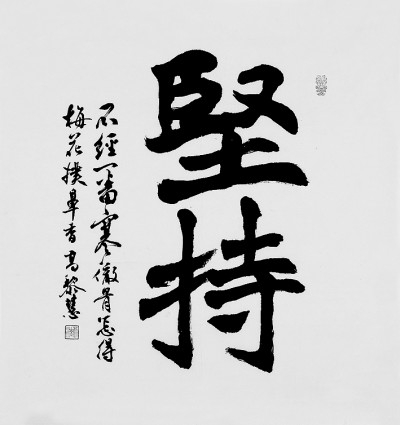 堅
持
不經一番寒徹骨怎得
梅花撲鼻香 高黎慧